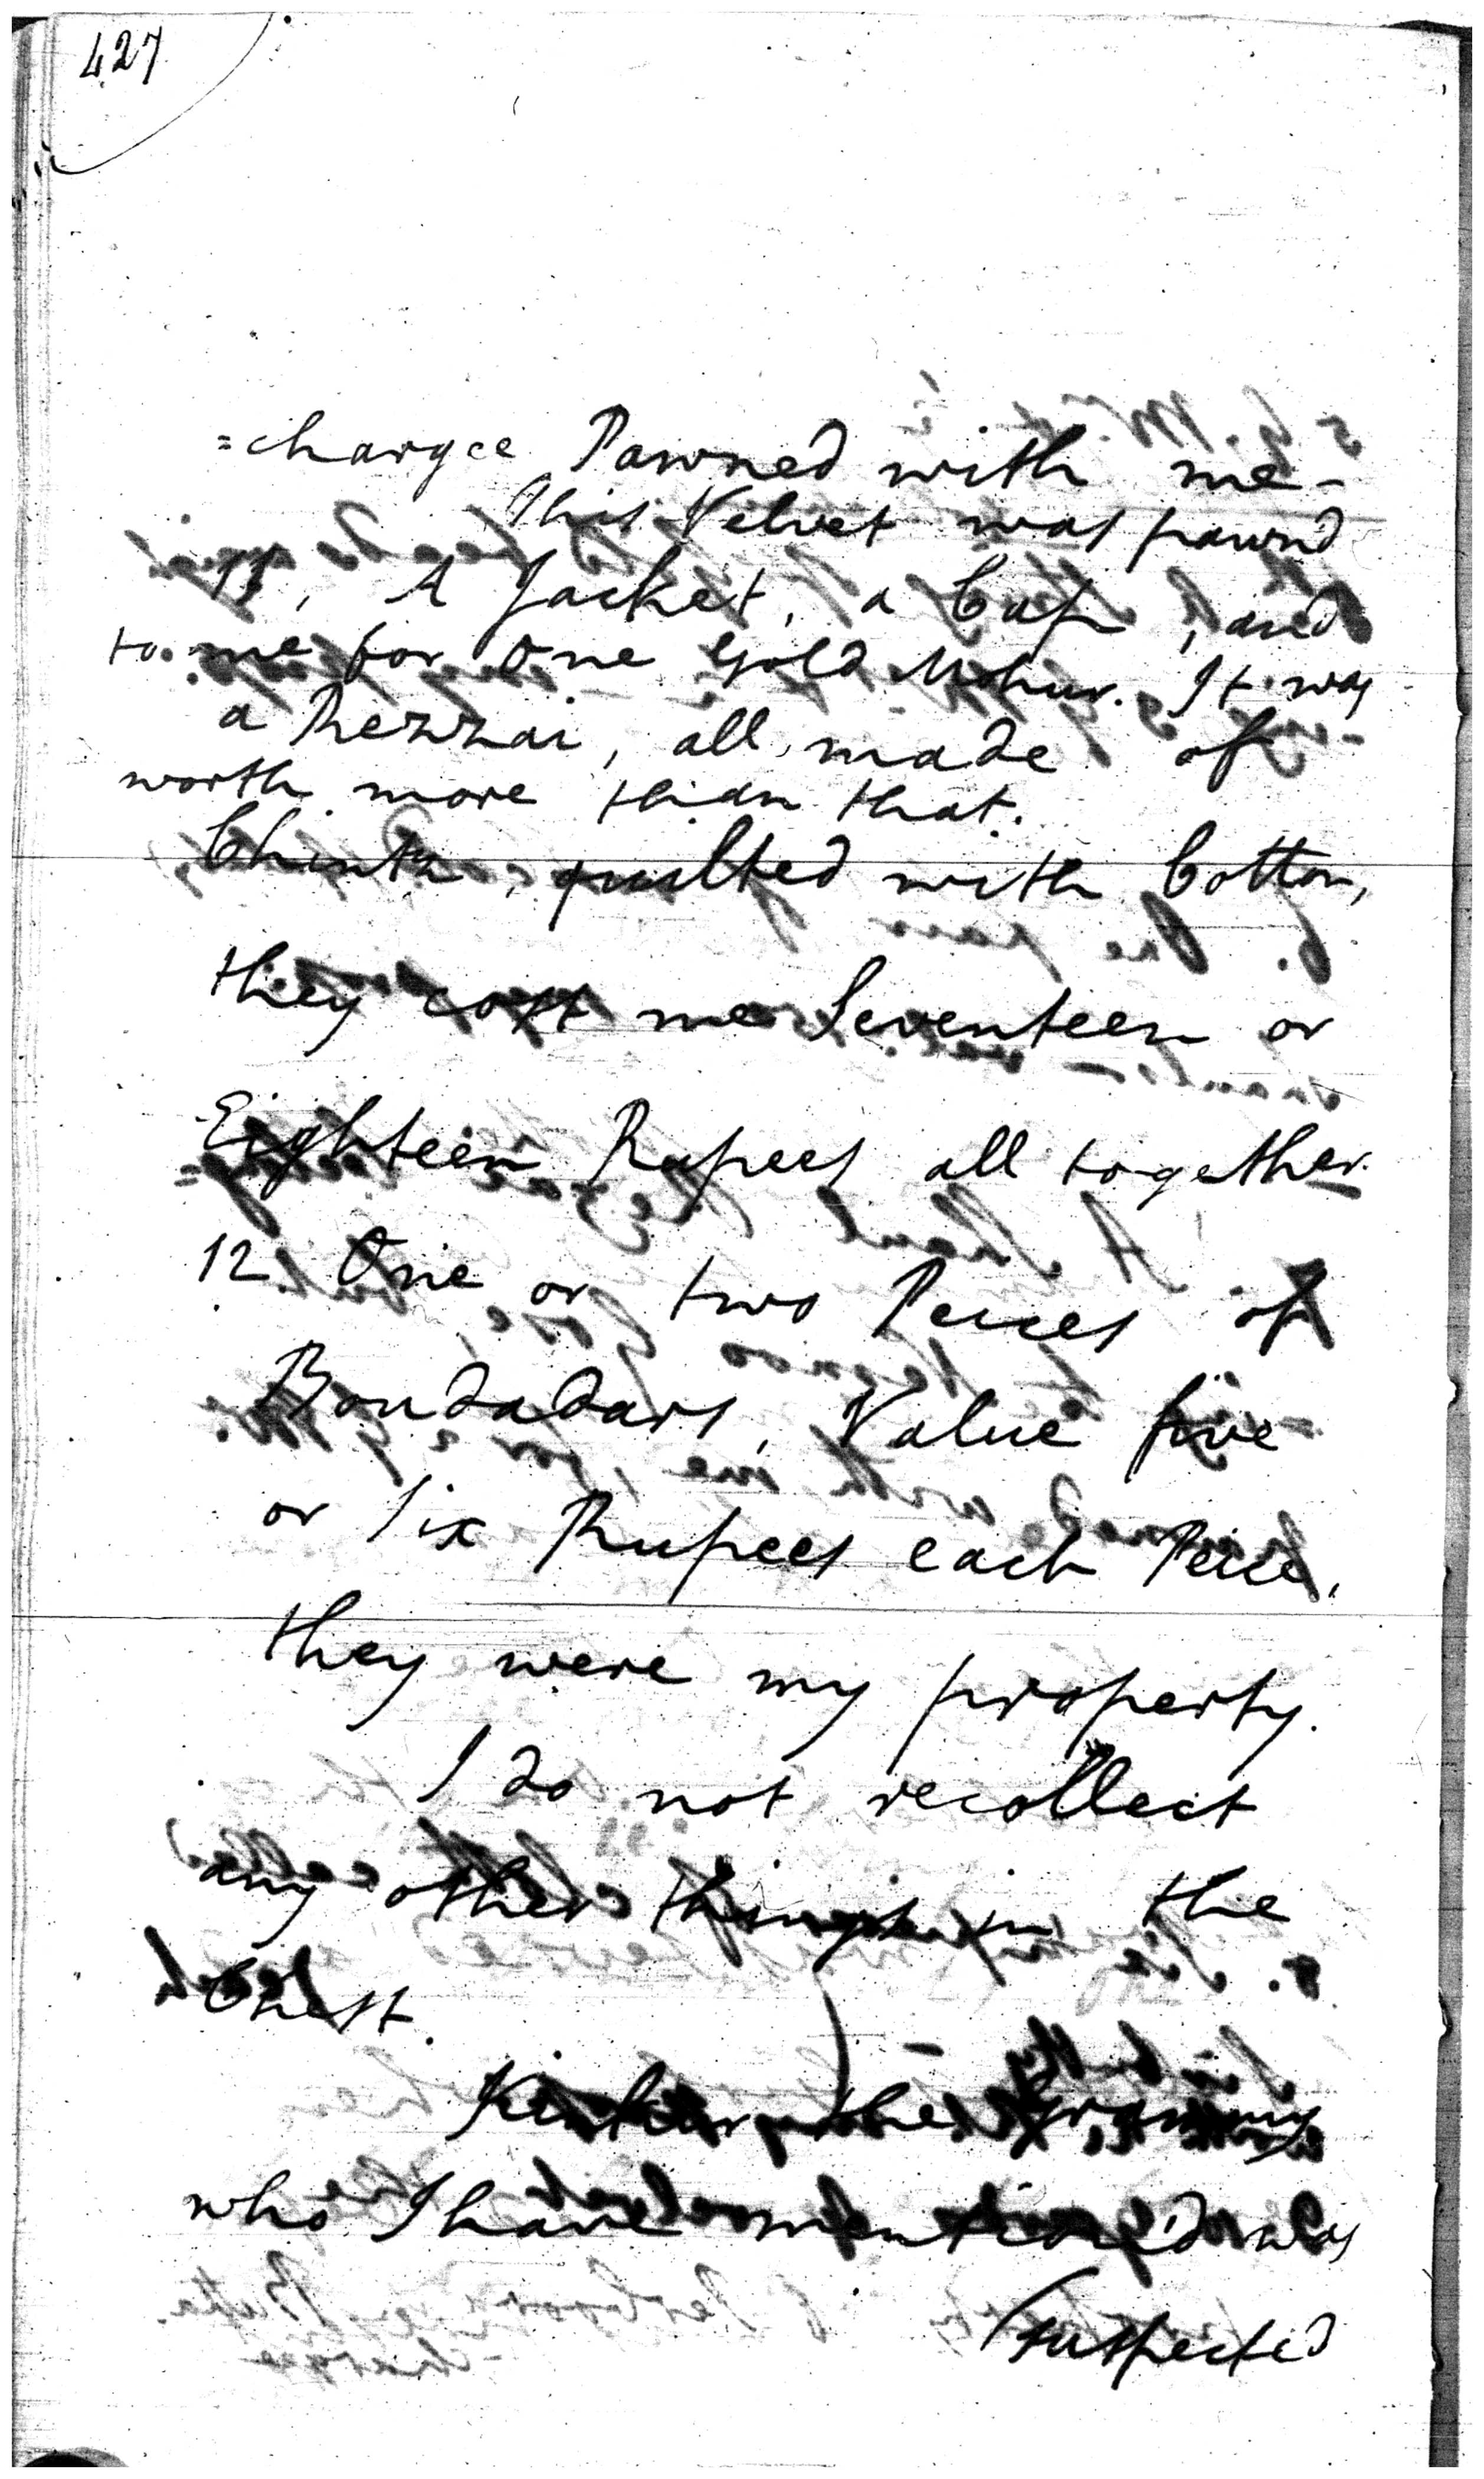 427
=chargee Pawned with me-
This Velvet was pawnd
11, A Jacket, a Cap, and
to me for One Gold Mohur. It was
a Rezzai, all made of
worth more than that.
Chintz, quilted with Cotton,
they cost me Seventeen or
Eighteen Rupees all together.
12 One or two Peices of
Boudadars, Value five
or Six Rupees each Peice,
they were my property.
I do not recollect
any other things in the
Chest.
the
who I have mention'd was
suspected